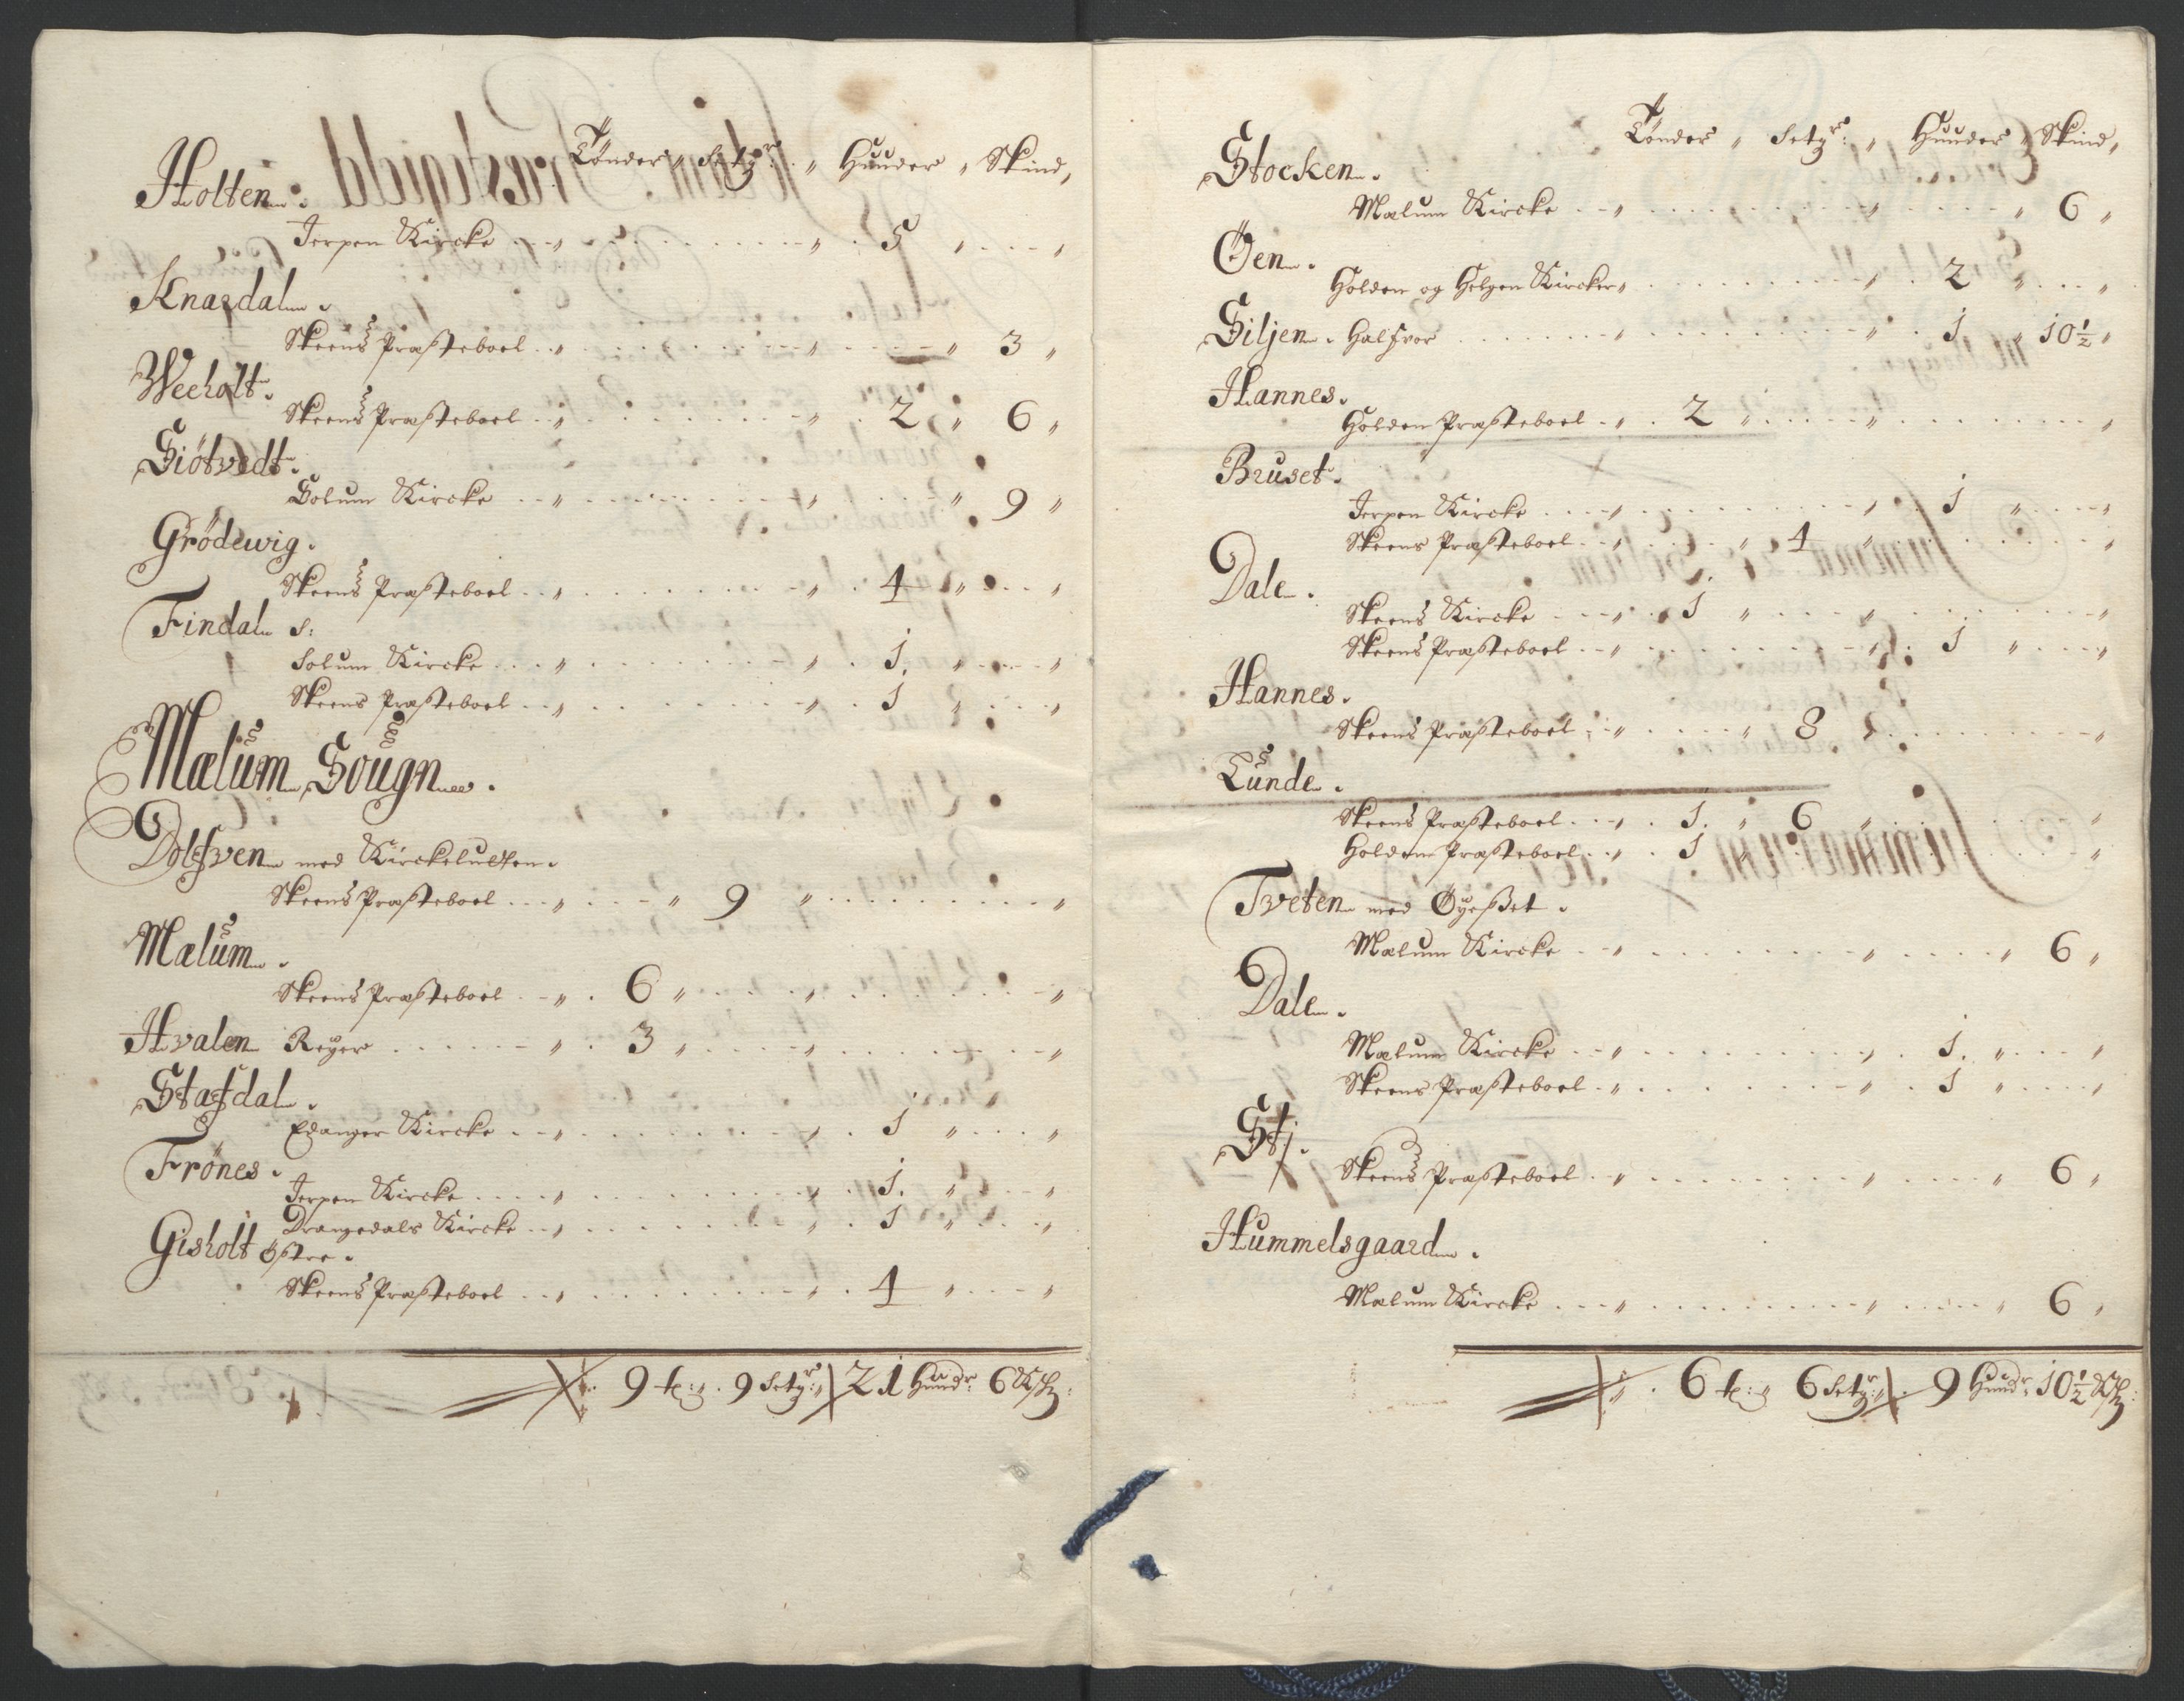 Tönder " Setgr: " Hunder " Skind,
Holten.
Jerpen Kircke . . " . . . . . . . . " . 5 " . . . "
Knardal.
Skeens Præsteboel . . " . . . . . . . . " . . . . " 3 "
Weeholt.
Skeens Præsteboel . . " . . . . . . . . " . 2 " 6 "
Giötvedt.
Solum Kircke . . " . . . . . . . . " . . . . " 9 "
Grödewig.
Skeens Præsteboel . . " . . . . . . . . " . 4 " . . . "
Findal S:
Solum Kircke . . . " . . . . . . . . " . 1. " . . . "
Skeens Præsteboel . . " . . . . . . . . " . 1 " . . . "
Mælum Sougn.
Dolfven med Kirckelutten.
Skeens Præsteboel . . . " . . . " 9 " . . . . . . . . . "
Mælum.
Skeens Præsteboel . . " . 6 " . . . . " . . . . . . . "
Hvalen Reyer . . . . . . " . 3 " . . . . " . . . . . . . "
Stafdal.
Edanger Kircke . . " . . . . . . . . " . 1 " . . . "
Frönes.
Jerpen Kircke . . . . " . . . . . . . . " . 1. " . . . "
Drangedals Kircke . . " . . . . . . . . " . 1 " . . . "
Gisholt östre.
Skeens Præsteboel . . " . . . . . . . . " . 4 " . . . "
9 t: " . 9 Setgr: " 21 Hundr: 6 Sk:
Tönder " Setgr: " Hunder " Skind,
Stocken.
Mælum Kircke . . " . . . . . . . . " . . . . " 6 "
Öen.
Holden og Helgen Kircker " . . . . . . . . " . 2 " . . . "
Siljen. Halfvor . . . . . . " . . . . . . . . " . 1 " 10½ "
Hannes.
Holden Præsteboel . " . 2 " . . . . " . . . . . . . "
Bruset.
Jerpen Kircke . . . . " . . . . . . . . " . 1 " . . . "
Skeens Præsteboel . . " . . . . " 4 " . . . . . . . "
Dale.
Skeens Kircke . . . " . 1 " . . . . " . . . . . . . "
Skeens Præsteboel . . " . . . . . . . . " . 1 " . . . "
Hannes.
Skeens Præsteboel . . " . . . . " 8 " . . . . . . . "
Lunde.
Skeens Præsteboel . . " . 1. " 6 " . . . . . . . "
Holden Præsteboel . . " . 1 " . . . . . . . . . . . "
Tveten med Öyesset.
Mælum Kircke . . " . . . . . . . . " . . . . " 6 "
Dale.
Mælum Kircke . . " . . . . . . . . " . 1. " . . . "
Skeens Præsteboel . " . . . . . . . . " . 1 " . . . "
Stj.
Skeens Præsteboel . " . . . . . . . . " . . . . " 6 "
Hummelsgaard.
Mælum Kircke . . . " . . . . . . . . " . . . . " 6 "
" . 6 t: " 6 Setgr: " . 9 Hundr: 10½ Sk: